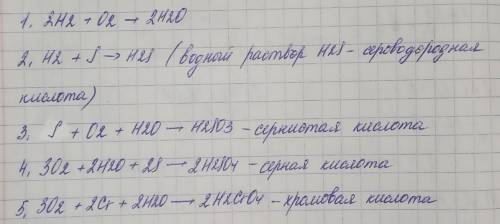 1. 2H2 + O2 → 2H2O
2. H2 + S → H2S (водный раствор H2S - сероводородная
кислота)
3. S + O2 + H2O → H2SO3 - сернистая кислота
4. 3O2 + 2H2O + 2S → 2H2SO4 - серная кислота
5. 3O2 + 2Cr + 2H2O → 2H2CrO4 - хромовая кислота